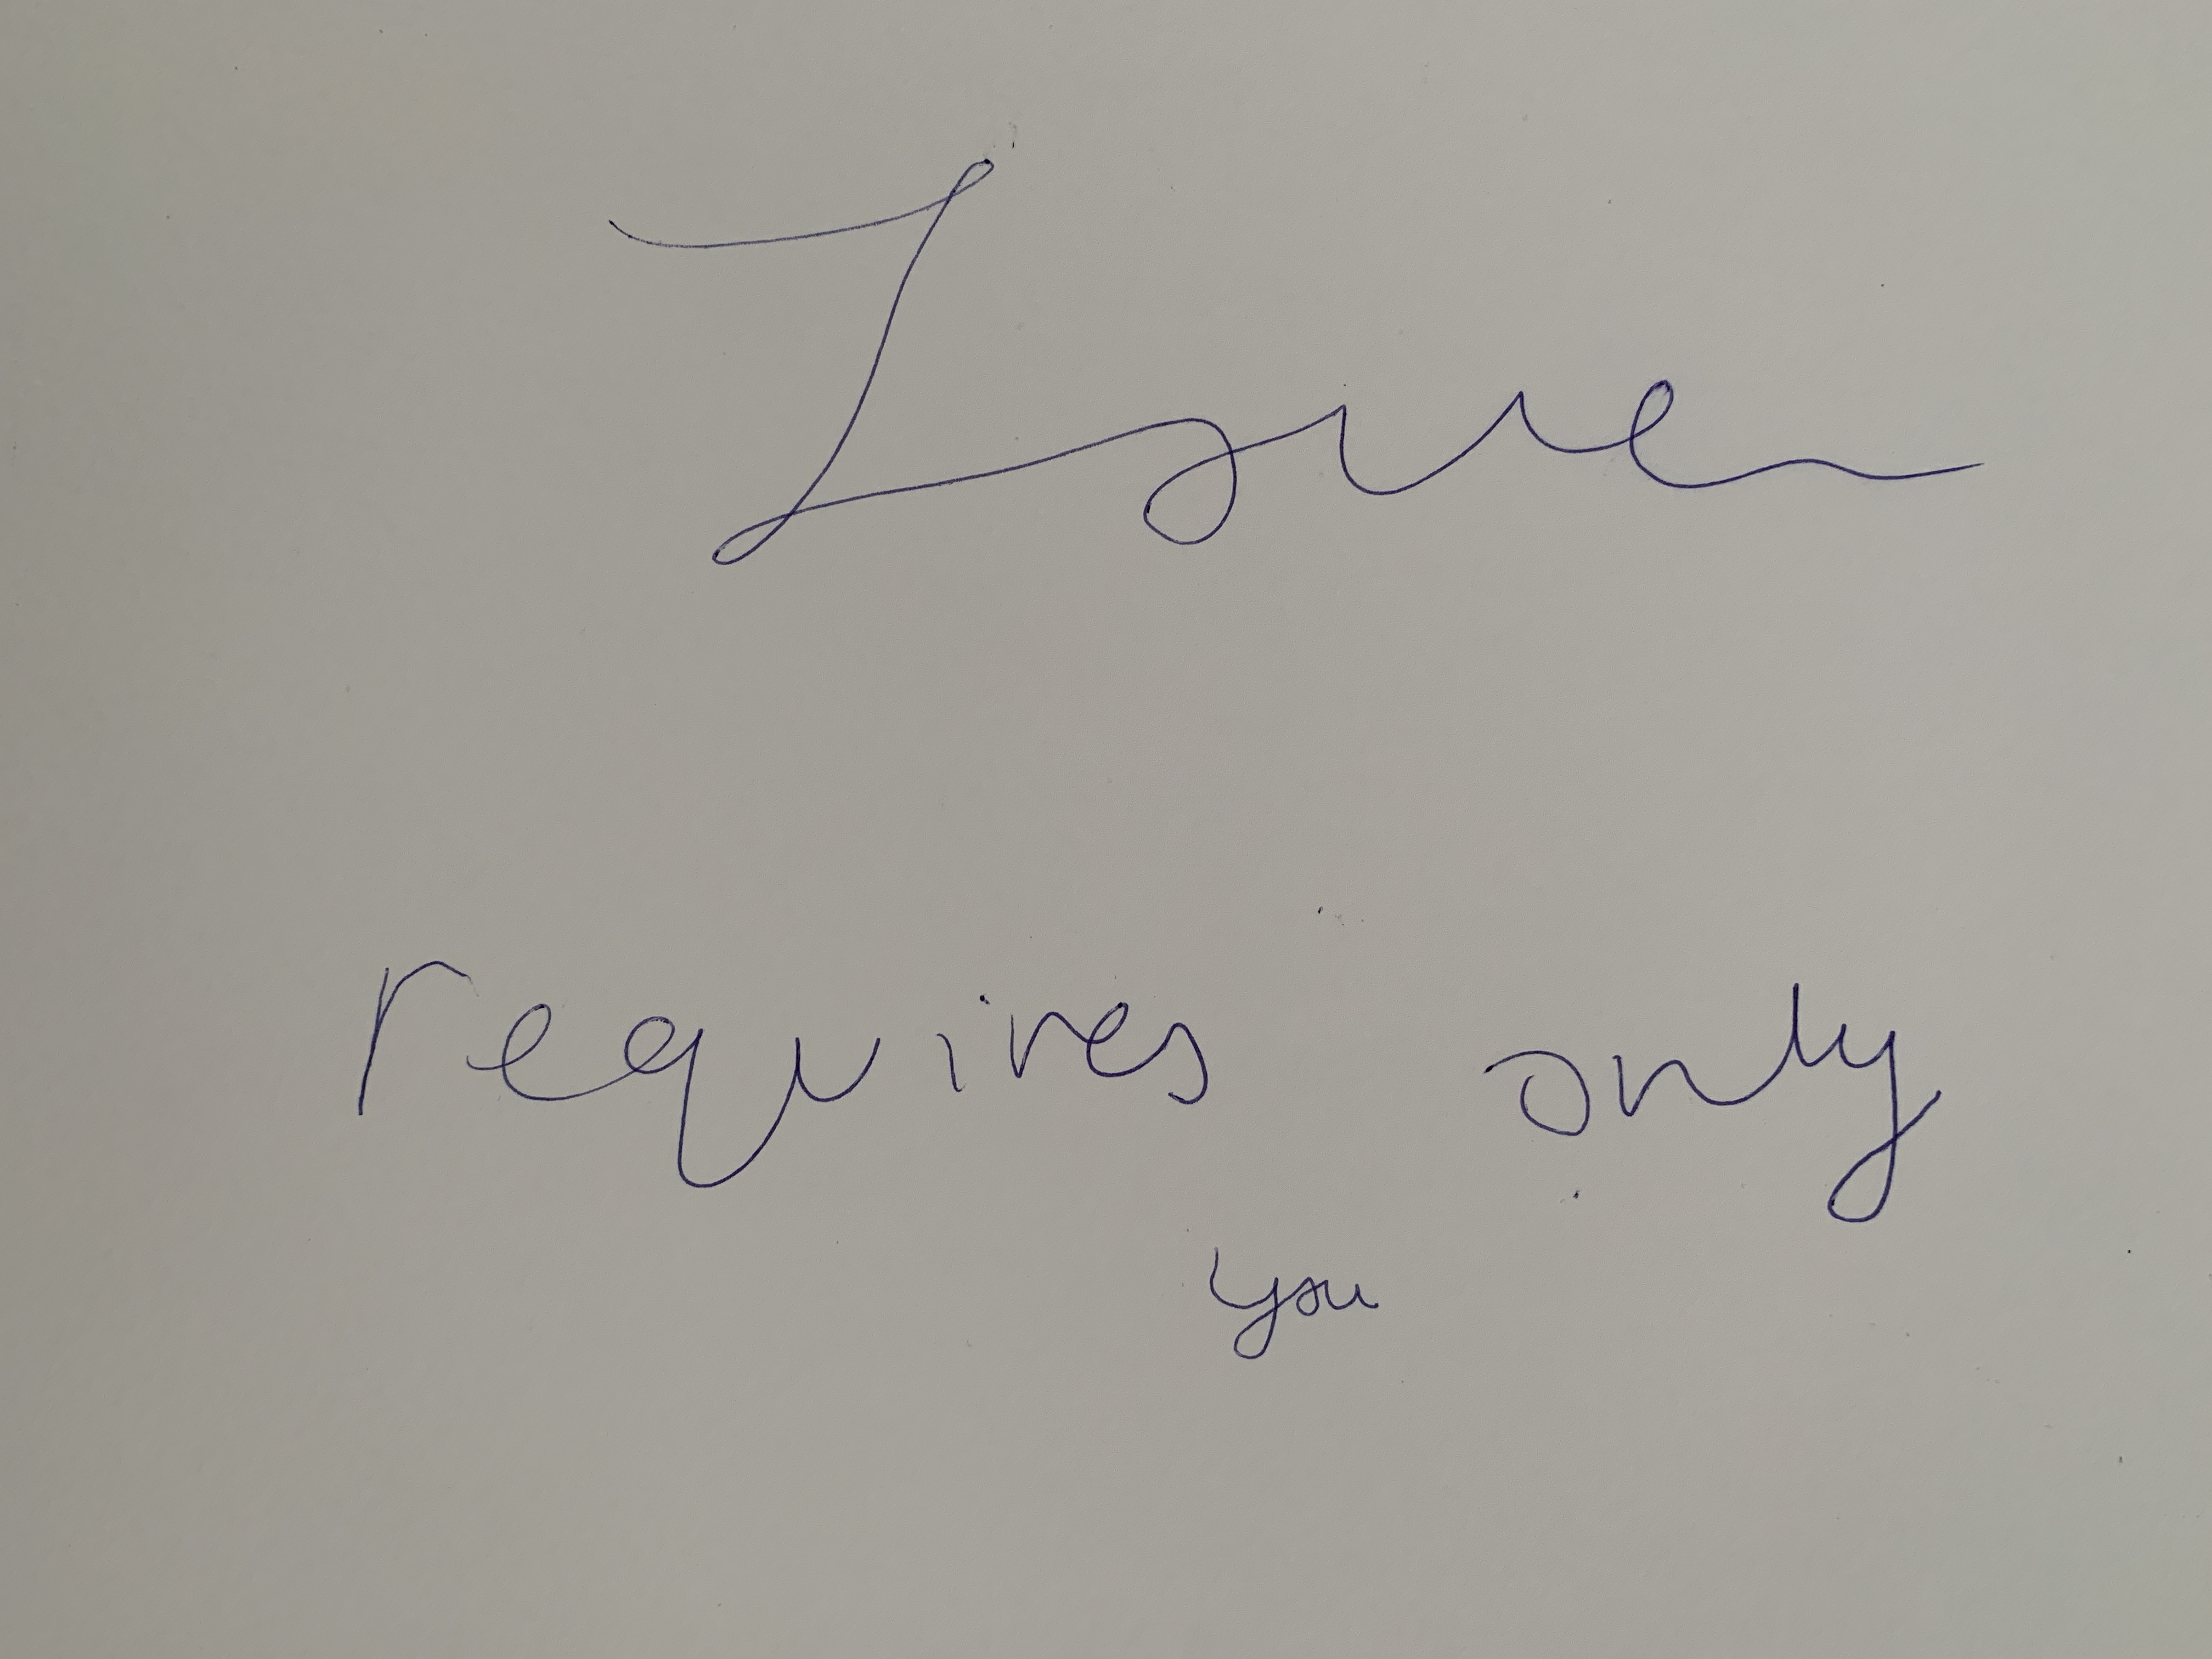 Love
requires only
you